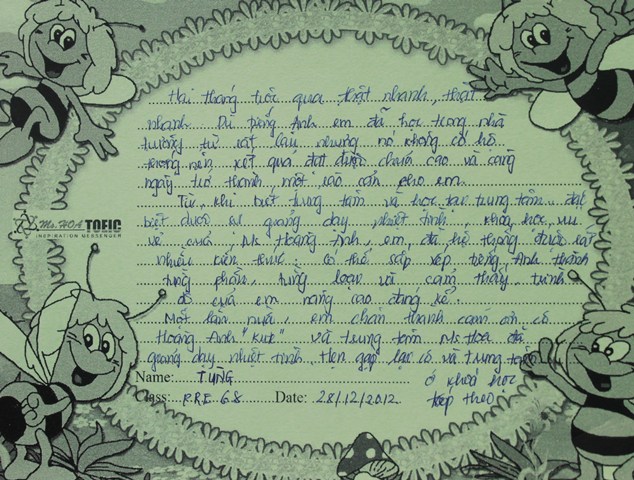 Hai tháng trôi qua thật nhanh, thật
nhanh. Dù tiếng Anh em đã học trong nhà
trường từ rất lâu nhưng nó không có hệ
thống nên kết quả đạt được chưa cao và càng
ngày trở thành một rào cản cho em.
Từ khi biết trung tâm và học tại trung tâm, đặc
biệt dưới sự giảng dạy nhiệt tình, khoa học, vui
vẻ của Ms Hoàng Anh, em đã hệ thống được rất
nhiều kiến thức, có thể sắp xếp tiếng Anh thành
từng phần, từng loại và cảm thấy trình
độ của em nâng cao đáng kể.
Một lần nữa, em chân thành cảm ơn cô
Hoàng Anh "kute" và trung tâm Ms Hoa đã
giảng dạy nhiệt tình. Hẹn gặp lại cô và trung tâm
ở khoá học
tiếp theo
Ms. HOA TOEIC
INSPIRATION MESSENGER
Name: TÙNG
Class: PRE 68 Date: 28/12/2012